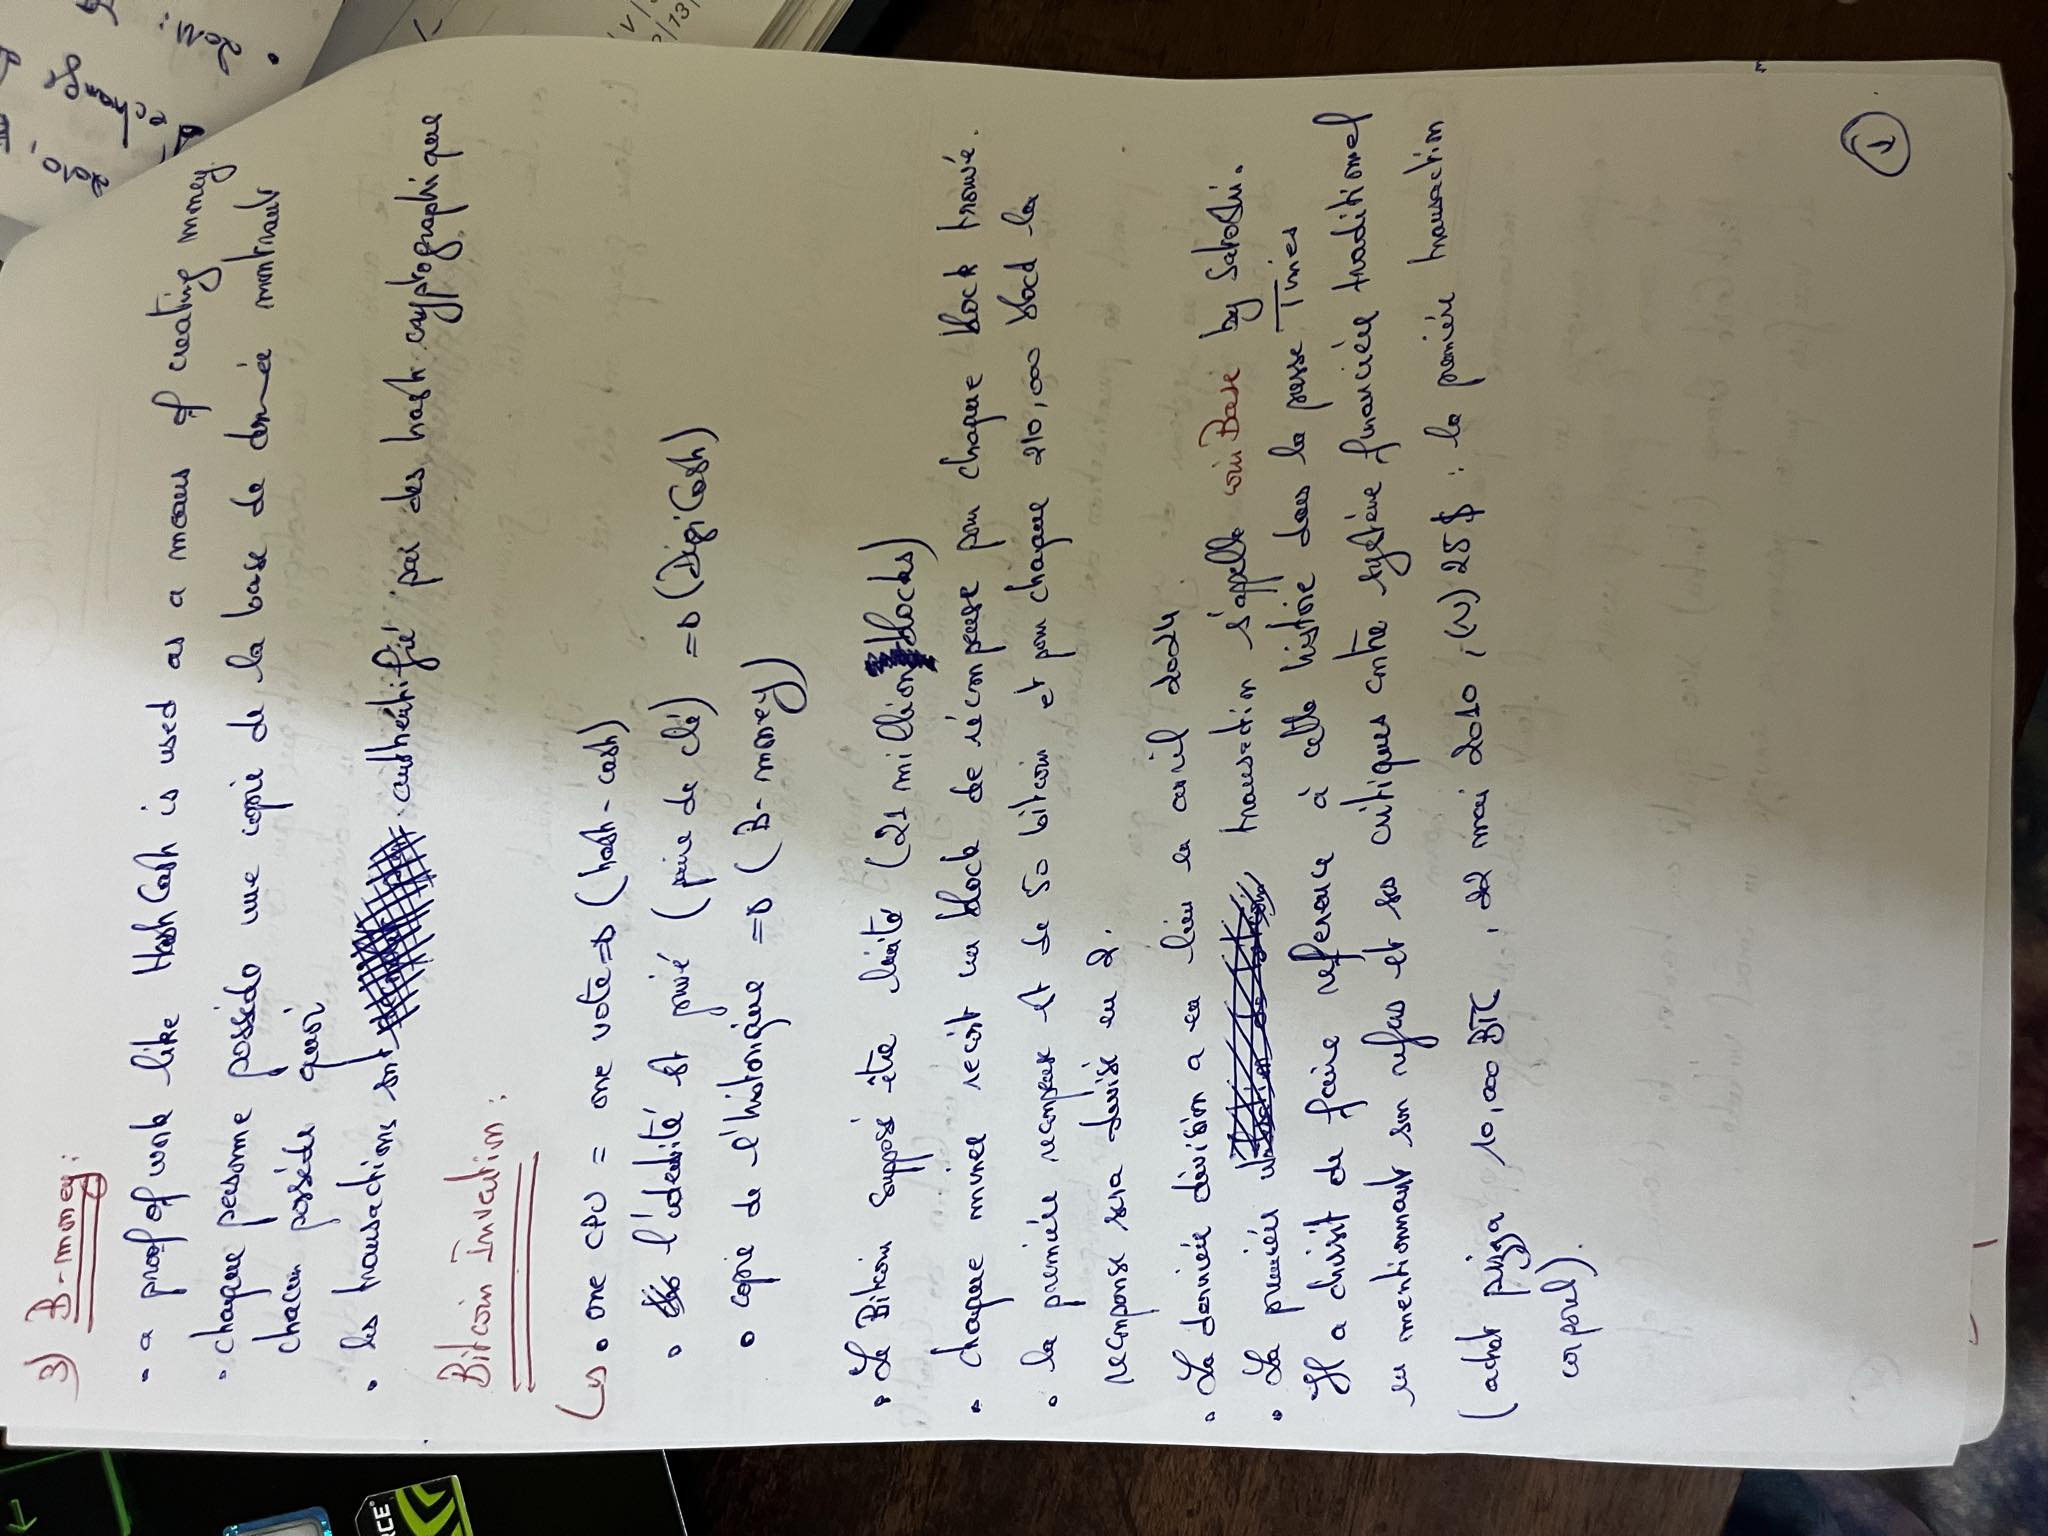 3) B-money:
• a proof of work like HashCash is used as a means of creating money
• chaque personne posséde une copie de la base de donnée montrant
chacun posséde quoi
• les transactions snt authentifié par des hash cryptographique
Bitcoin Invention:
• one CPU = one vote => (hash-cash)
• l'identité st privé (paire de clé) => (DigiCash)
• copie de l'historique => (B-money)
• Le Bitcoin supposé être limité (21 million blocks)
• chaque miner recoit un block de récompense pour chaque block trouvé.
• la première recompense st de 50 bitcoin et pour chaque 210,000 block la
recomponse sera devisé en 2.
• La dernière dévision a eu lieu en avril 2024
• La première transaction s'appelle coinBase by Satoshi.
Il a choisit de faire reference à cette histoire dans la presse Times
en mentionnant son refus et ses critiques contre système financière traditionnel
(achat pizza 10,000 BTC, 22 mai 2010, (~) 25$ : la première transaction
corporel).
1
2011:
échange
2010,
RCE